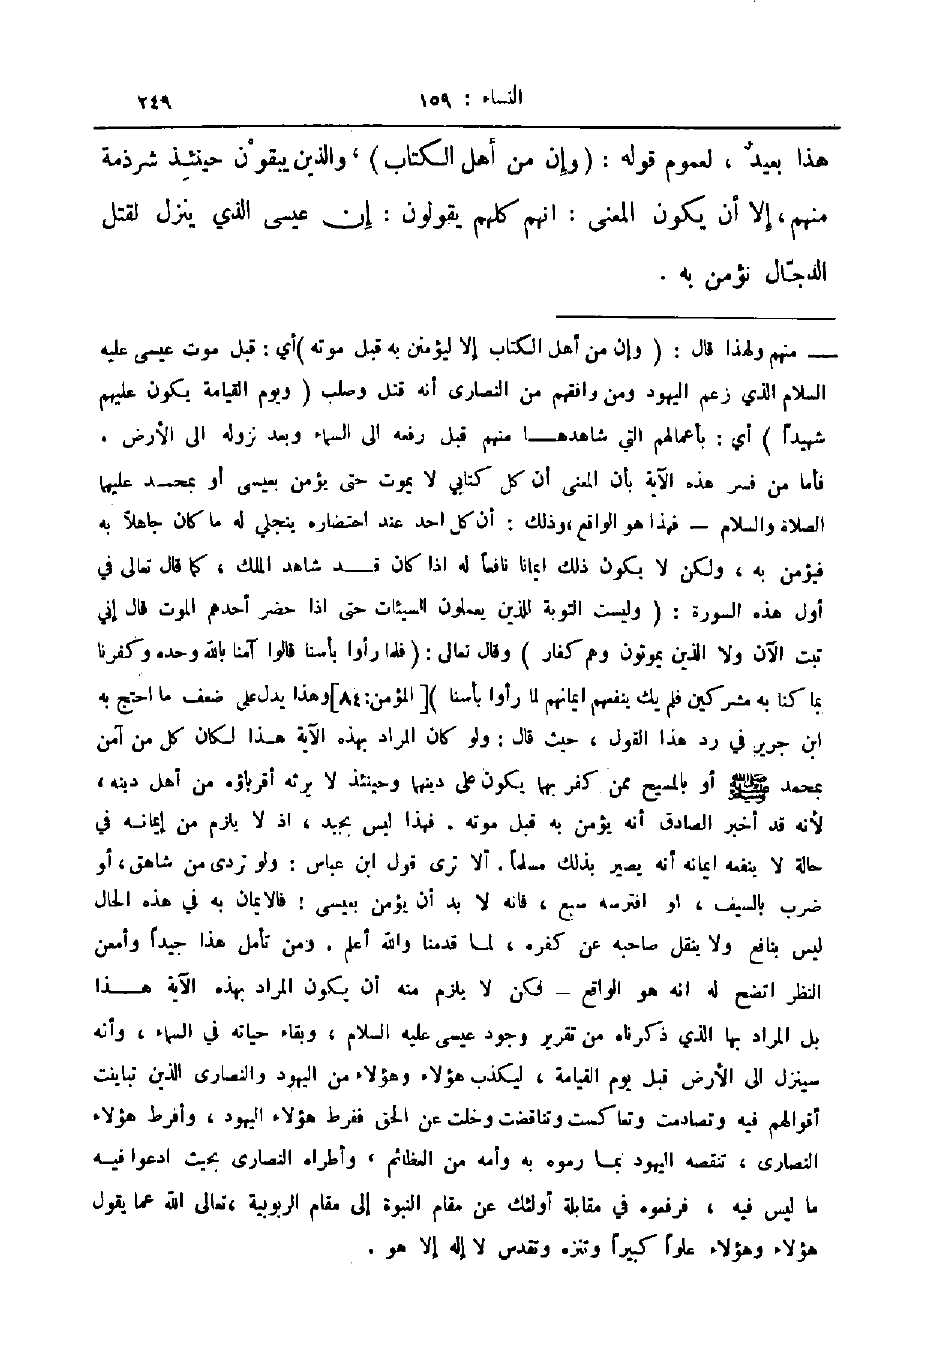 النساء : ١٥٩ ٢٤٩
هذا بعيدٌ ، لعموم قوله : (وإن من أهل الكتاب) ، والذين يبقوْن حينئذ شرذمة
منهم ، إلا أن يكون المعنى : انهم كلهم يقولون : إن عيسى الذي ينزل لقتل
الدجّال نؤمن به .
ـــ منهم ولهذا قال : ( وإن من أهل الكتاب إلا ليؤمنن به قبل موته )أي : قبل موت عيسى عليه
السلام الذي زعم اليهود ومن وافقهم من النصارى أنه قتل وصلب ( ويوم القيامة يكون عليهم
شهيداً ) أي : بأعمالهم التي شاهدها منهم قبل رفعه الى السماء وبعد نزوله الى الأرض .
فأما من فسر هذه الآية بأن المعنى أن كل كتابي لا يموت حتى يؤمن بعيسى أو بمحمد عليها
الصلاة والسلام – فهذا هو الواقع ،وذلك : أن كل احد عند احتضاره ينجلي له ما كان جاهلاً به
فيؤمن به ، ولكن لا يكون ذلك ايمانا نافعاً له اذا كان قد شاهد الملك ، كما قال تعالى في
أول هذه السورة : ( وليست التوبة للذين يعملون السيئات حتى اذا حضر أحدهم الموت قال إني
تبت الآن ولا الذين يموتون وهم كفار ) وقال تعالى : ( فلما رأوا بأسنا قالوا آمنا بالله وحده وكفرنا
بما كنا به مشركين فلم يك ينفعهم ايمانهم لما رأوا بأسنا )[ المؤمن:٨٤]وهذا يدل على ضعف ما احتج به
ابن جرير في رد هذا القول ، حيث قال : ولو كان المراد بهذه الآية هذا لكان كل من آمن
بمحمد ﷺ أو بالمسيح ممن كفر بها يكون على دينها وحينئذ لا يرثه أقرباؤه من أهل دينه ،
لأنه قد أخبر الصادق أنه يؤمن به قبل موته . فهذا ليس بجيد ، اذ لا يلزم من إيمانه في
حالة لا ينفعه ايمانه أنه يصير بذلك مسلماً . ألا ترى قول ابن عباس : ولو تردى من شاهق ، أو
ضرب بالسيف ، او افترسه سبع ، فانه لا بد أن يؤمن بعيسى ! فالايمان به في هذه الحال
ليس بنافع ولا ينقل صاحبه عن كفره ، لما قدمنا والله أعلم . ومن تأمل هذا جيداً وأمعن
النظر اتضح له انه هو الواقع – فكن لا يلزم منه أن يكون المراد بهذه الآية هذا
بل المراد بها الذي ذكرناه من تقرير وجود عيسى عليه السلام ، وبقاء حياته في السماء ، وأنه
سينزل الى الأرض قبل يوم القيامة ، ليكذب هؤلاء وهؤلاء من اليهود والنصارى الذين تباينت
أقوالهم فيه وتصادمت وتعاكست وتناقضت وخلت عن الحق ففرط هؤلاء اليهود ، وأفرط هؤلاء
النصارى ، تنقصه اليهود بما رموه به وأمه من العظائم ، وأطراه النصارى بحيث ادعوا فيه
ما ليس فيه ، فرفعوه في مقابلة أولئك عن مقام النبوة إلى مقام الربوبية ،تعالى الله عما يقول
هؤلاء وهؤلاء علواً كبيراً وتنزه وتقدس لا إله إلا هو .